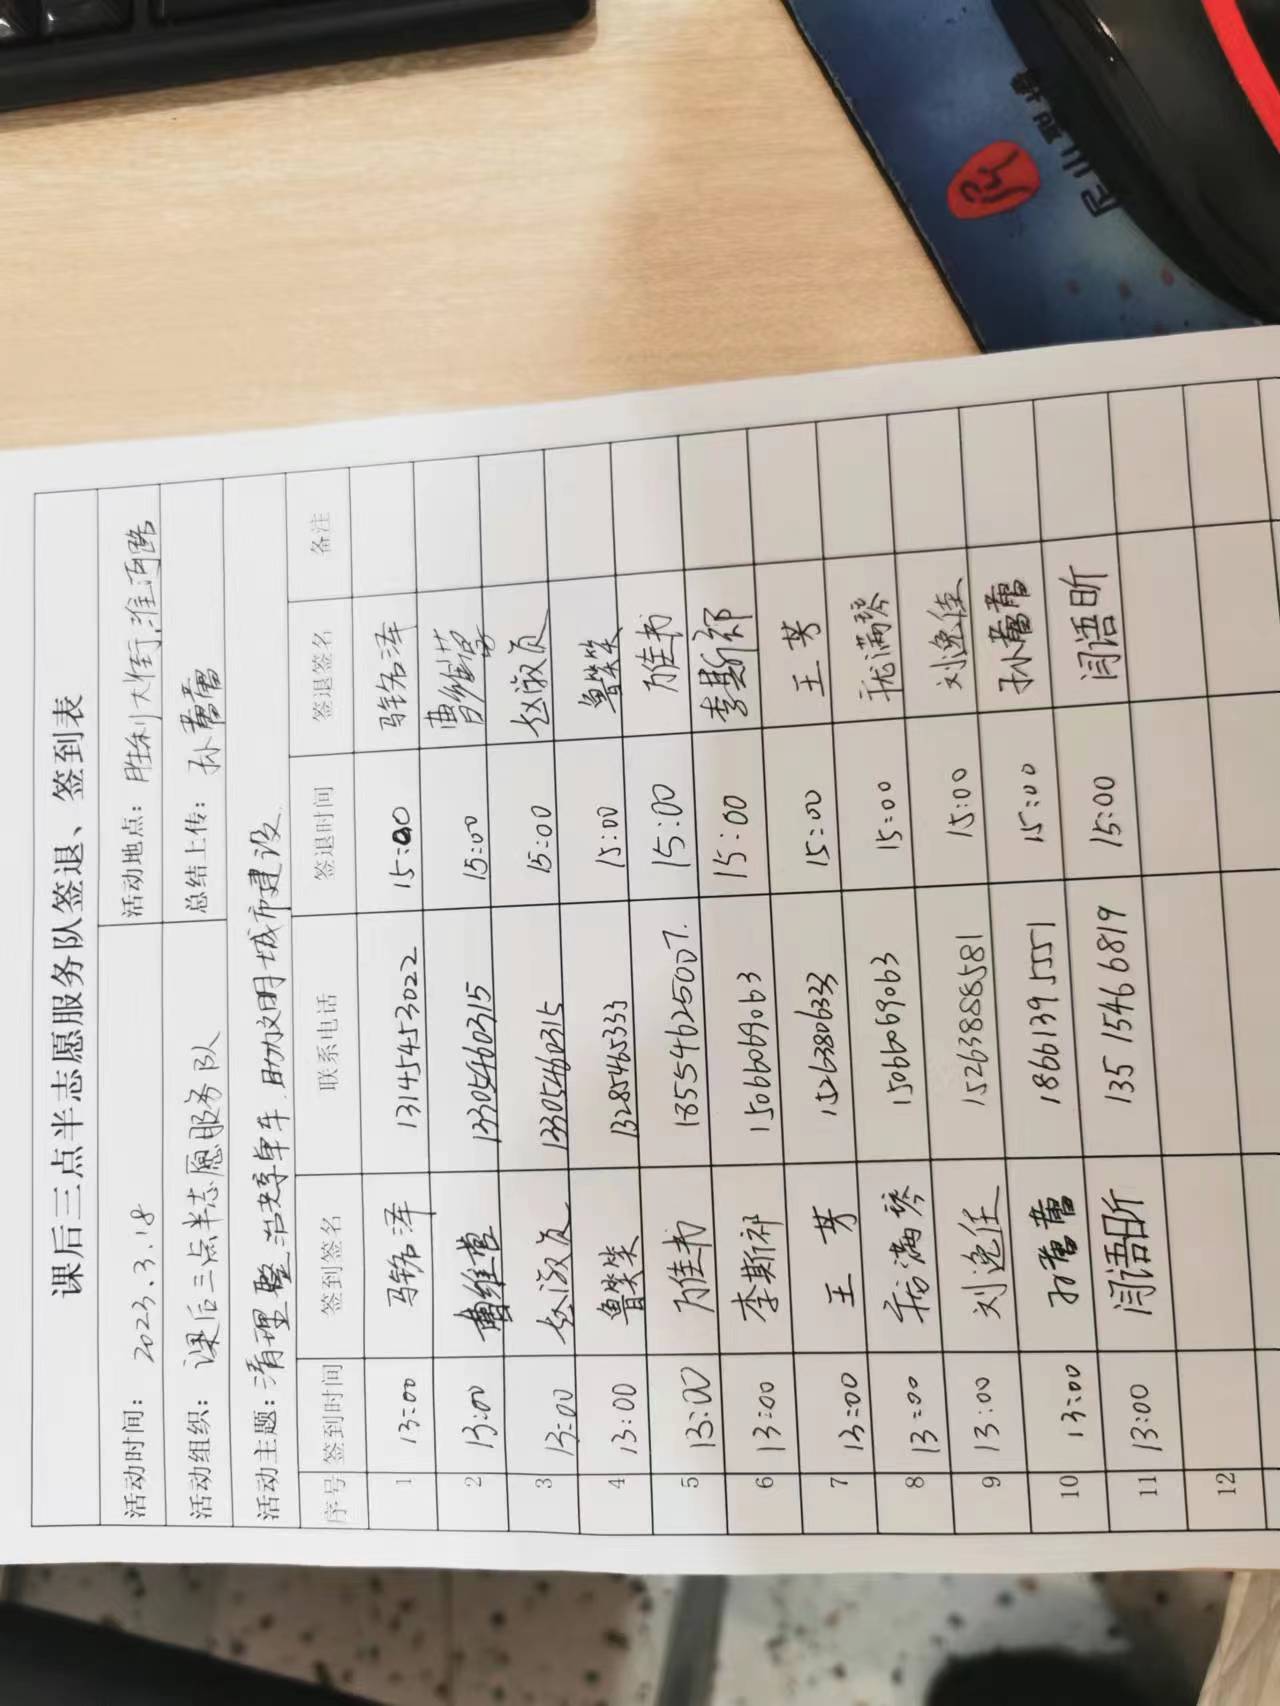 课后三点半志愿服务队签退、签到表
活动时间: 2023.3.18 活动地点: 胜利大街淮河路
活动组织: 课后三点半志愿服务队 总结上传: 孙蕾蕾
活动主题: 清理整治共享单车,助力文明城市建设
序号 签到时间 签到签名 联系电话 签退时间 签退签名 备注
1 13:00 马铭泽 13145453022 15:00 马铭泽
2 13:00 曹维营 13305460315 15:00 曹维营
3 13:00 赵淑贞 13305460315 15:00 赵淑贞
4 13:00 鲁笑笑 13285465333 15:00 鲁笑笑
5 13:00 万佳书 18554625007. 15:00 万佳书
6 13:00 李斯祁 15066069063 15:00 李斯祁
7 13:00 王芳 15263806323 15:00 王芳
8 13:00 满琴 15066069063 15:00 满琴
9 13:00 刘逸佳 15263888581 15:00 刘逸佳
10 13:00 孙蕾蕾 18661395551 15:00 孙蕾蕾
11 13:00 闫语昕 135 1546 6819 15:00 闫语昕
12